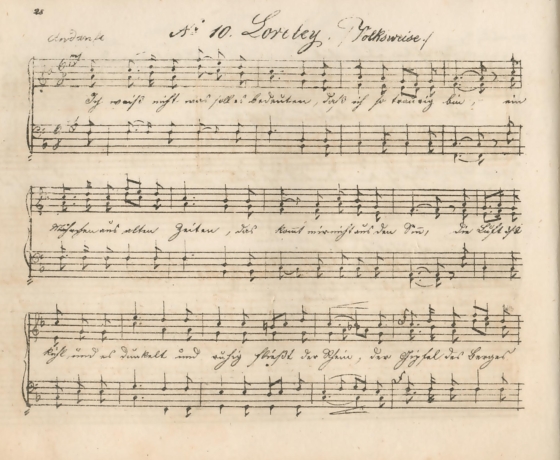 25
Andante
No 10. Loreley. (Volksweise.)
mf
Ich weiß nicht was soll es bedeuten, daß ich so traurig bin, ein
Mährchen aus alten Zeiten, das kommt mir nicht aus dem Sinn, die Luft ist
kühl und es dunkelt und ruhig fließt der Rhein, der Gipfel des Berges